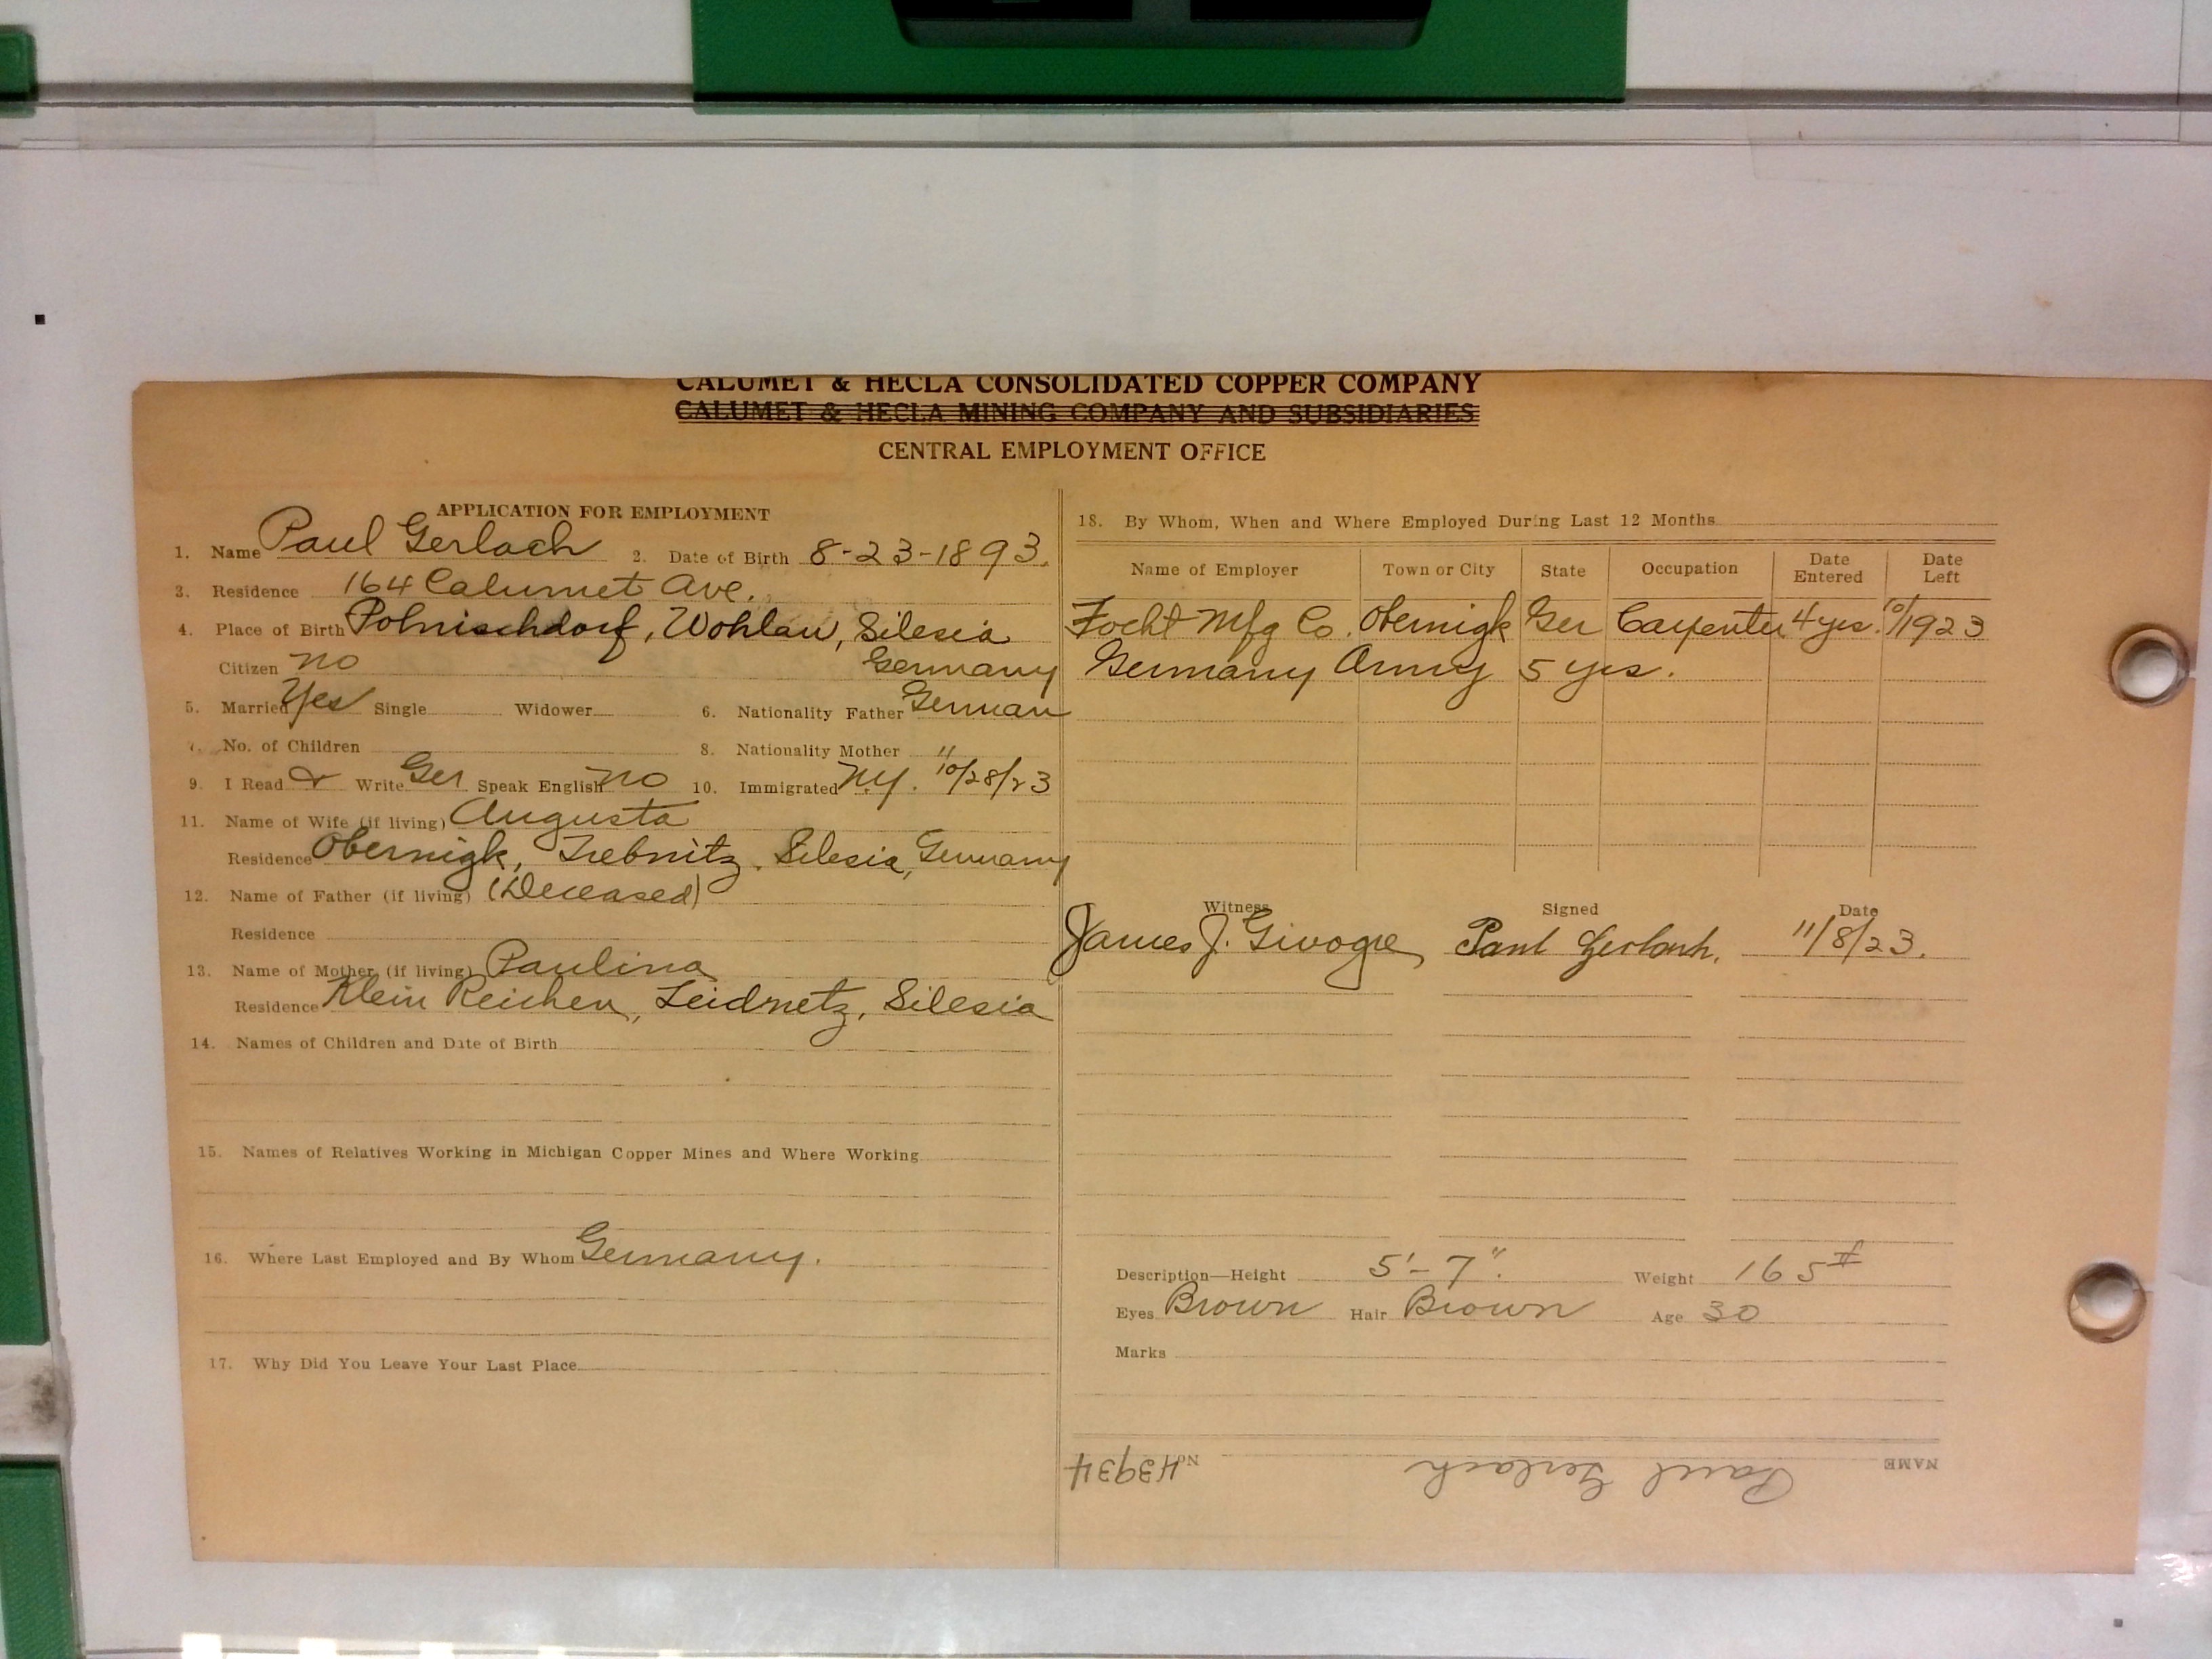 CALUMET & HECLA CONSOLIDATED COPPER COMPANY
CALUMET & HECLA MINING COMPANY AND SUBSIDIARIES
CENTRAL EMPLOYMENT OFFICE
APPLICATION FOR EMPLOYMENT
1. Name Paul Gerlach 2. Date of Birth 8-23-1893.
3. Residence 164 Calumet Ave.
4. Place of Birth Polnischdorf, Wohlau, Silesia
Citizen no Germany
5. Married Yes Single Widower 6. Nationality Father German
7. No. of Children 8. Nationality Mother "
9. I Read & Write Ger Speak English no 10. Immigrated N.Y. 10/28/23
11. Name of Wife (if living) Augusta
Residence Obernigk, Trebnitz, Silesia, Germany
12. Name of Father (if living) (Deceased)
Residence
13. Name of Mother (if living) Paulina
Residence Klein Reichen, Leidnetz, Silesia
14. Names of Children and Date of Birth
15. Names of Relatives Working in Michigan Copper Mines and Where Working
16. Where Last Employed and By Whom Germany.
17. Why Did You Leave Your Last Place
18. By Whom, When and Where Employed During Last 12 Months
Name of Employer Town or City State Occupation Date Entered Date Left
Focht Mfg Co. Obernigk Ger Carpenter 4 yrs. 10/1923
Germany Army 5 yrs.
Witness Signed Date
James J. Paul Gerlach. 11/8/23.
Description—Height 5'-7". Weight 165#
Eyes Brown Hair Brown Age 30
Marks
NAME Paul Gerlach No. 43934